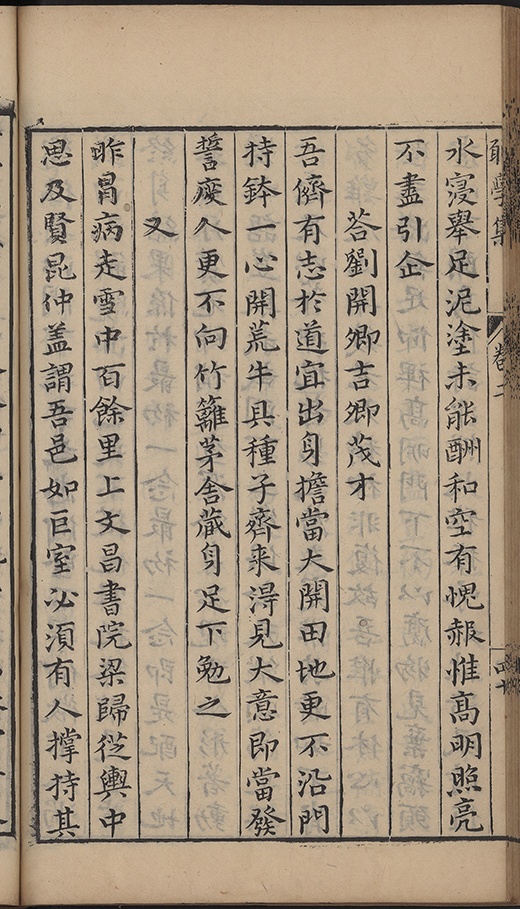 水寖舉足泥塗未能酬和空有愧赧惟高明照亮
不盡引企
荅劉開卿吉卿茂才
吾儕有志於道宜出身擔當大開田地更不沿門
持鉢一心開荒牛具種子齊来淂見大意即當發
誓癈人更不向竹籬茅舎藏身足下勉之
又
昨冐病走雪中百餘里上文昌書院梁歸從輿中
思及賢昆仲盖謂吾邑如巨室必須有人撑持其